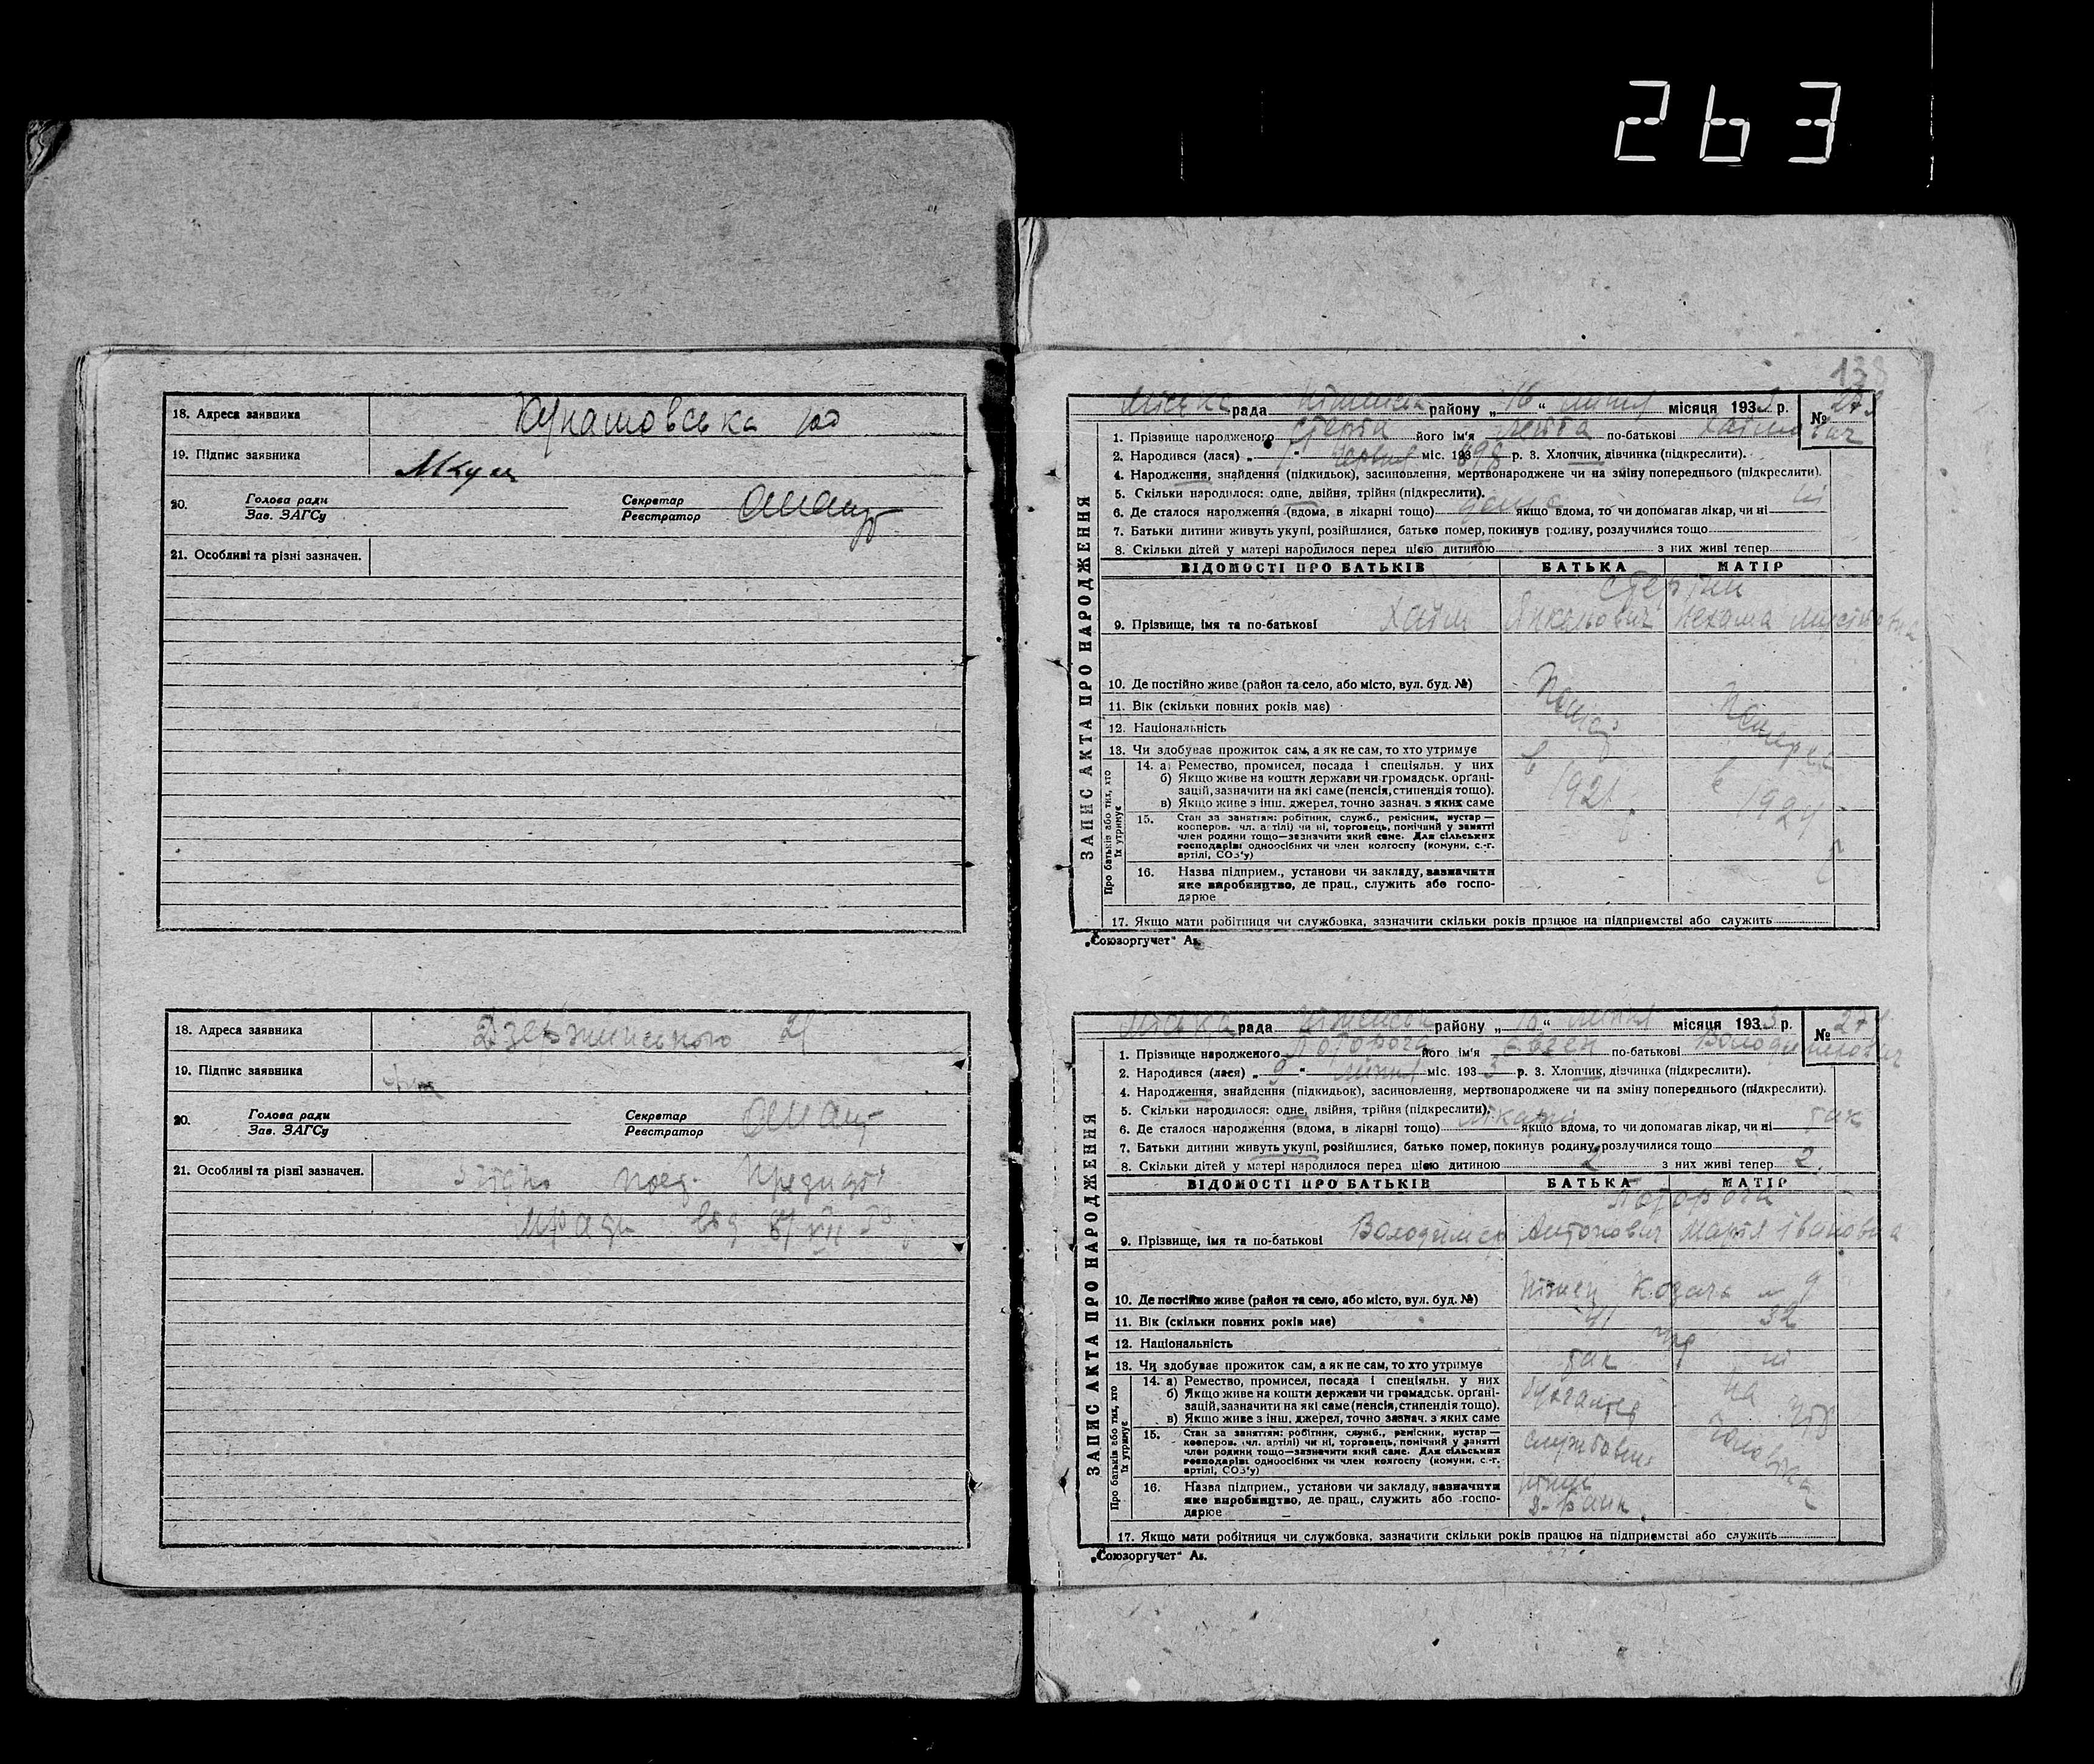 263
18. Адреса заявника Кунашовська 100
19. Підпис заявника
20. Голова ради
Зав. ЗАГСу
Секретар
Реєстратор
21. Особливі та різні зазначен.
18. Адреса заявника Дзержинського 21
19. Підпис заявника
20. Голова ради
Зав. ЗАГСу
Секретар
Реєстратор
21. Особливі та різні зазначен.
від
ЗАПИС АКТА ПРО НАРОДЖЕННЯ
Міська рада Ніженськ району „16“ липня місяця 1933 р. №
1. Прізвище народженого його ім'я по-батькові Хаїмович
2. Народився (лася) „ “ червня міс. 193 р. 3. Хлопчик, дівчинка (підкреслити).
4. Народження, знайдення (підкидьок), засиновлення, мертвонароджене чи на зміну попереднього (підкреслити).
5. Скільки народилося: одне, двійня, трійня (підкреслити).
6. Де сталося народження (вдома, в лікарні тощо) дома якщо вдома, то чи допомагав лікар, чи ні ні
7. Батьки дитини живуть укупі, розійшлися, батько помер, покинув родину, розлучилися тощо
8. Скільки дітей у матері народилося перед цією дитиною з них живі тепер
ВІДОМОСТІ ПРО БАТЬКІВ БАТЬКА МАТІР
9. Прізвище, імя та по-батькові Хаїм Янкельович Нехама
10. Де постійно живе (район та село, або місто, вул. буд. №)
11. Вік (скільки повних років має)
12. Національність
13. Чи здобуває прожиток сам, а як не сам, то хто утримує
Про батьків або тих, хто їх утримує
14. а) Ремество, промисел, посада і спеціяльн. у них
б) Якщо живе на кошти держави чи громадськ. орґані-
зацій, зазначити на які саме (пенсія, стипендія тощо).
в) Якщо живе з інш. джерел, точно зазнач. з яких саме
в 1921 в 1924
15. Стан за заняттям: робітник, служб., ремісник, кустар —
кооперов. чл. артілі) чи ні, торговець, помічний у занятті
член родини тощо—зазначити який саме. Для сільських
господарів: одноосібних чи член колгоспу (комуни, с.-г.
артілі, СОЗ'у)
16. Назва підприєм., установи чи закладу, зазначити
яке виробництво, де прац., служить або госпо-
дарює
17. Якщо мати робітниця чи службовка, зазначити скільки років працює на підприємстві або служить
„Союзоргучет“ Ав.
ЗАПИС АКТА ПРО НАРОДЖЕННЯ
Міська рада Ніженськ району „10“ липня місяця 1933 р. № 274
1. Прізвище народженого його ім'я Євген по-батькові Володимирович
2. Народився (лася) „9“ липня міс. 1933 р. 3. Хлопчик, дівчинка (підкреслити).
4. Народження, знайдення (підкидьок), засиновлення, мертвонароджене чи на зміну попереднього (підкреслити).
5. Скільки народилося: одне, двійня, трійня (підкреслити).
6. Де сталося народження (вдома, в лікарні тощо) лікарні якщо вдома, то чи допомагав лікар, чи ні так
7. Батьки дитини живуть укупі, розійшлися, батько помер, покинув родину, розлучилися тощо
8. Скільки дітей у матері народилося перед цією дитиною 2 з них живі тепер 2.
ВІДОМОСТІ ПРО БАТЬКІВ БАТЬКА МАТІР
9. Прізвище, імя та по-батькові Володимер Антонович Марія Івановна
10. Де постійно живе (район та село, або місто, вул. буд. №) Ніжен Козача № 9
11. Вік (скільки повних років має) 41 32
12. Національність укр
13. Чи здобуває прожиток сам, а як не сам, то хто утримує так ні
Про батьків або тих, хто їх утримує
14. а) Ремество, промисел, посада і спеціяльн. у них
б) Якщо живе на кошти держави чи громадськ. орґані-
зацій, зазначити на які саме (пенсія, стипендія тощо).
в) Якщо живе з інш. джерел, точно зазнач. з яких саме
бухгалтер на утр чоловіка
15. Стан за заняттям: робітник, служб., ремісник, кустар —
кооперов. чл. артілі) чи ні, торговець, помічний у занятті
член родини тощо—зазначити який саме. Для сільських
господарів: одноосібних чи член колгоспу (комуни, с.-г.
артілі, СОЗ'у)
службовец
16. Назва підприєм., установи чи закладу, зазначити
яке виробництво, де прац., служить або госпо-
дарює
17. Якщо мати робітниця чи службовка, зазначити скільки років працює на підприємстві або служить
„Союзоргучет“ Ав.